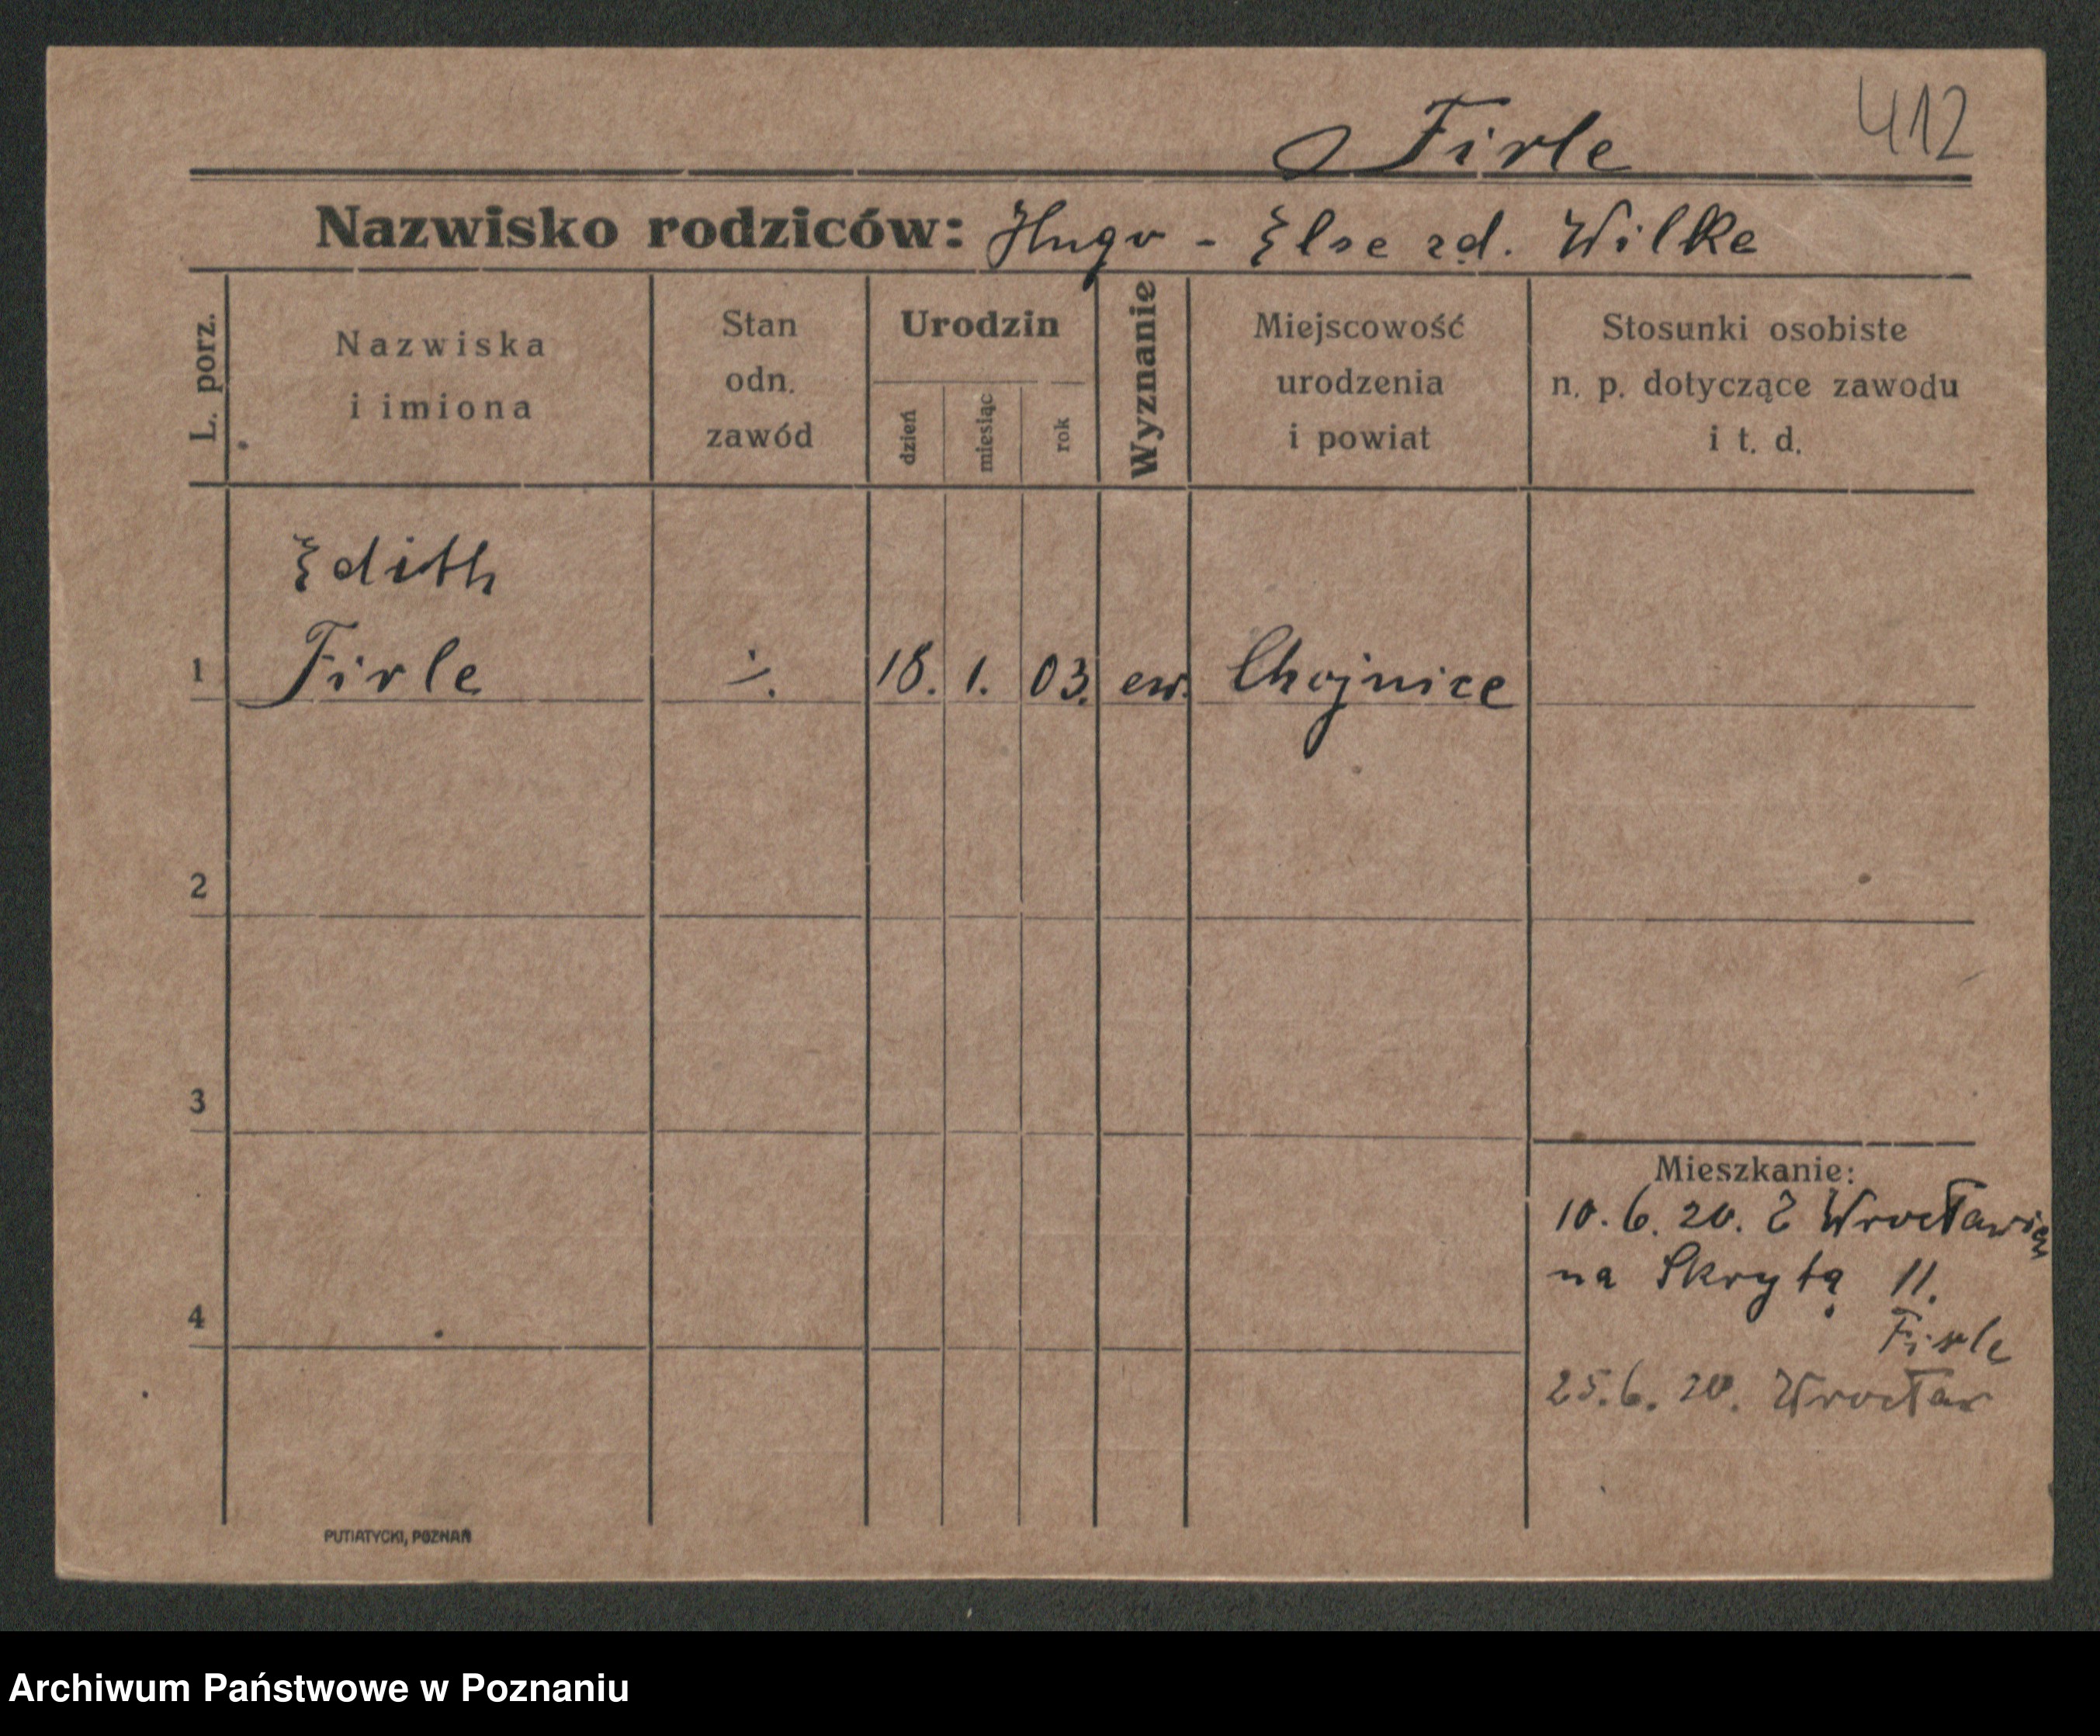 412
Firle
Nazwisko rodziców: Hugo - Else zd. Wilke
L. porz.
Nazwiska
i imiona
Stan
odn.
zawód
Urodzin
dzień
miesiąc
rok
Wyznanie
Miejscowość
urodzenia
i powiat
Stosunki osobiste
n. p. dotyczące zawodu
i t. d.
Edith
1 Firle ./. 18. 1. 03. ew. Chojnice
2
3
4
Mieszkanie:
10.6.20. Z Wrocławia
na Skrytą 11.
Firle
25.6.20. Wrocław
PUTIATYCKI, POZNAŃ
Archiwum Państwowe w Poznaniu